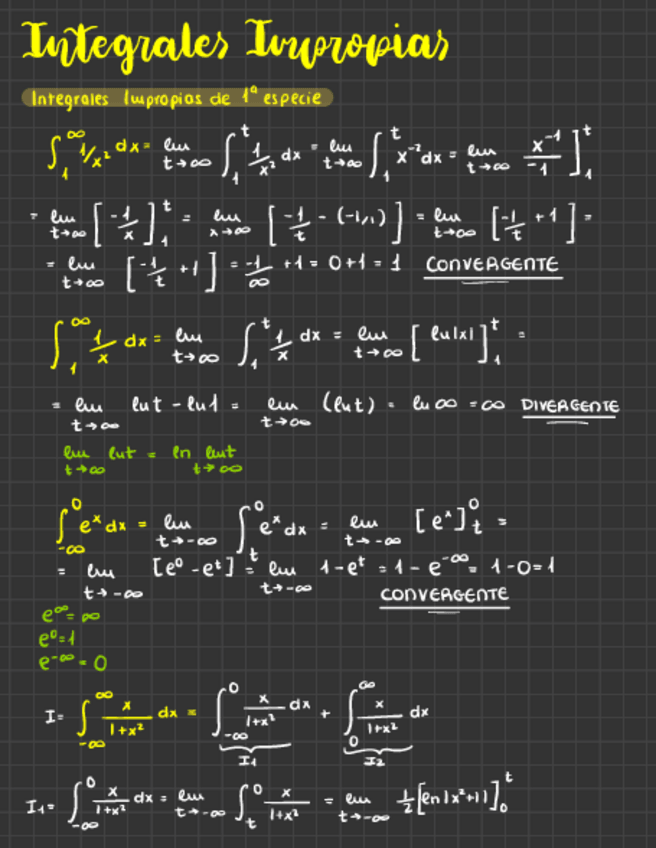 Integrales Impropias
Integrales Impropias de 1ª especie
∫₁^∞ 1/x² dx = lim t→∞ ∫₁^t 1/x² dx = lim t→∞ ∫₁^t x⁻² dx = lim t→∞ x⁻¹/-1 ]₁^t
= lim t→∞ [-1/x]₁^t = lim x→∞ [-1/t - (-1/1)] = lim t→∞ [-1/t + 1] =
= lim t→∞ [-1/t + 1] = -1/∞ + 1 = 0 + 1 = 1 CONVERGENTE
∫₁^∞ 1/x dx = lim t→∞ ∫₁^t 1/x dx = lim t→∞ [ln|x|]₁^t =
= lim t→∞ ln t - ln 1 = lim t→∞ (ln t) = ln ∞ = ∞ DIVERGENTE
lim t→∞ ln t = ln lim t→∞ t
∫₋∞^0 eˣ dx = lim t→-∞ ∫ₜ^0 eˣ dx = lim t→-∞ [eˣ]ₜ^0 =
= lim t→-∞ [e⁰ - eᵗ] = lim t→-∞ 1 - eᵗ = 1 - e^-∞ = 1 - 0 = 1
CONVERGENTE
e^∞ = ∞
e⁰ = 1
e^-∞ = 0
I = ∫₋∞^∞ x/(1+x²) dx = ∫₋∞^0 x/(1+x²) dx + ∫₀^∞ x/(1+x²) dx
I₁ I₂
I₁ = ∫₋∞^0 x/(1+x²) dx = lim t→-∞ ∫ₜ^0 x/(1+x²) = lim t→-∞ 1/2 [ln|x²+1|]₀^t